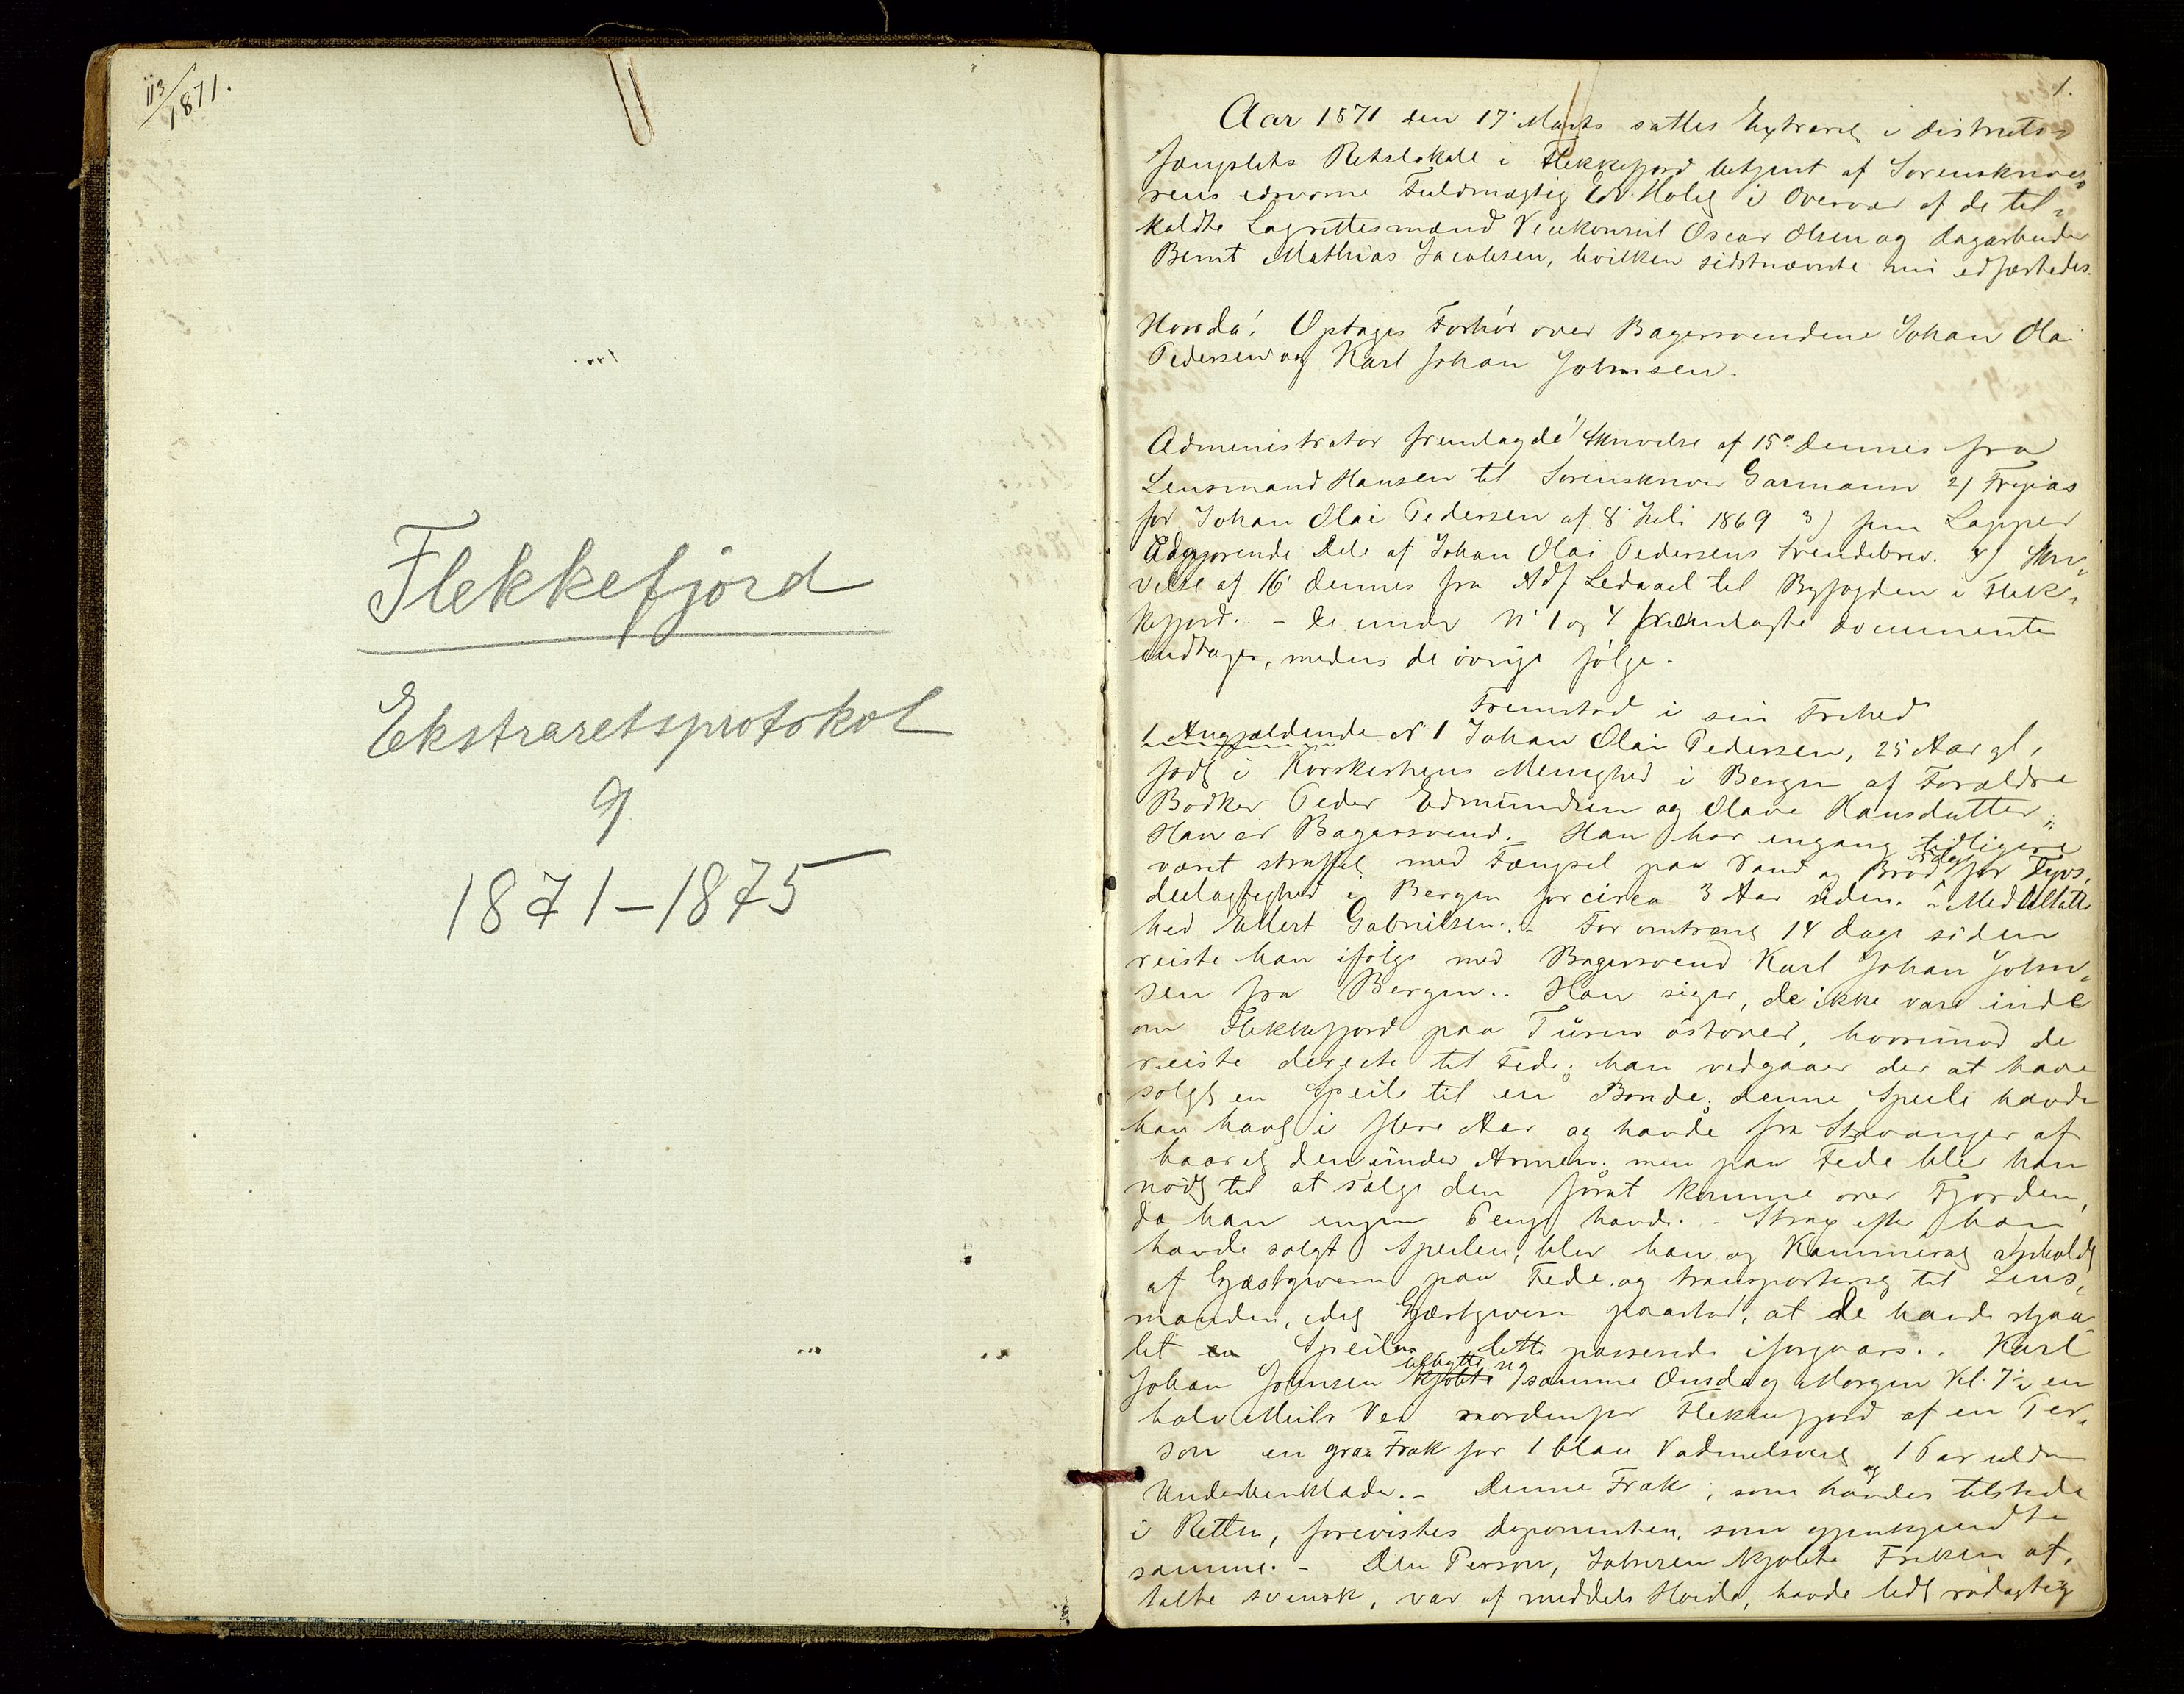 113/1871.
Flekkefjord
Ekstraretsprotokol
9
1871-1875
1.
Aar 1871 den 17' Marts sattes Extraret i Distrikts-
fængslets Retslokale i Flekkefjord betjent af Sorenskrive-
rens edsvorne Fuldmægtig Edv. i Overvær af de til-
kaldte Lagrettesmænd Vicekonsul Oscar Olsen og Dagarbeider
Bernt Mathias Jacobsen, hvilken sidstnævnte nu edfæstedes.
Hvorda! Optages Forhør over Bagersvendene Johan Olai
Pedersen og Karl Johan Johnsen.
Administrator fremlagde 1 Skrivelse af 15de dennes fra
Lensmand Hansen til Sorenskriver Garmann 2) Fripas
for Johan Olai Pedersen af 8' Juli 1869 3) fem Lapper
Udgjørende Dele af Johan Olai Pedersens Svendebrev. 4) Skri-
velse af 16' dennes fra Adj Ledaael til Byfogden i Flek-
kefjord. - De under No 1 og 4 fremlagte Documenter
indtages, medens de øvrige følge.
Fremstod i sin Frihed
1 Angjældende No 1 Johan Olai Pedersen, 25 Aar gl,
født i Korskirkens Menighed i Bergen af Forældre
Bødker Peder Edmundsen og Olave Hansdatter.
Han er Bagersvend. Han har engang tidligere
været straffet med Fængsel paa Vand og Brød 5 dage for Tyvs-
deelagtighed i Bergen for circa 3 Aar siden. - Med
hed Ellert Gabrielsen. - For omtrent 14 Dage siden
reiste han ifølge med Bagersvend Karl Johan John-
sen fra Bergen.. Han siger, de ikke vare inde
om Flekkefjord paa Turen østover, hvorimod de
reiste directe til Fede; han vedgaaer der at have
solgt en Speile til en Bonde; denne Speile havde
han havt i flere Aar og havde fra Stavanger af
baaret den under Armen; men paa Fede blev han
nødt til at sælge den forat komme over Fjorden,
da han ingen Penge havde. - Strax efter han
havde solgt Speilen, blev han og Kammerat anholdt
af Gjæstgiveren paa Fede og transporteret til Lens-
manden, idet Gjæstgiveren paastod, at de havde stjaa-
let en Speilen dette passerede iforgaars.. Karl
Johan Johnsen kjøbte tilbyttede sig samme Onsdag Morgen Kl. 7 i en
halv Miils Vei nordenfor Flekkefjord af en Per-
son en graa Frak for 1 blau Vadmelsvest og 1 Par uldne
Underbenklæder. - Denne Frak, som havdes tilstede
i Retten, forevistes Deponenten, som gjenkjendte
samme. - Den Person, Johnsen kjøbte Frakken af,
talte svensk, var af middels Høide, havde lidt rødagtig